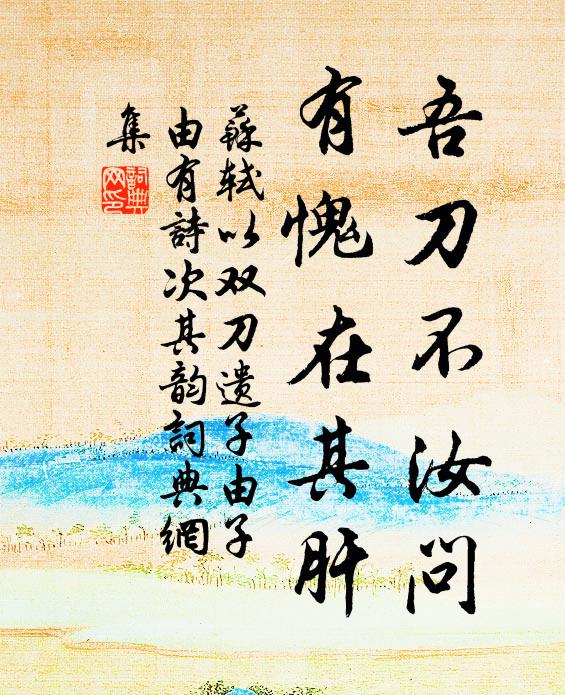 吾刀不汝問
有愧在其肝
蘇軾以双刀遺子由子
由有詩次其韵詞典網
集
詞典
网印